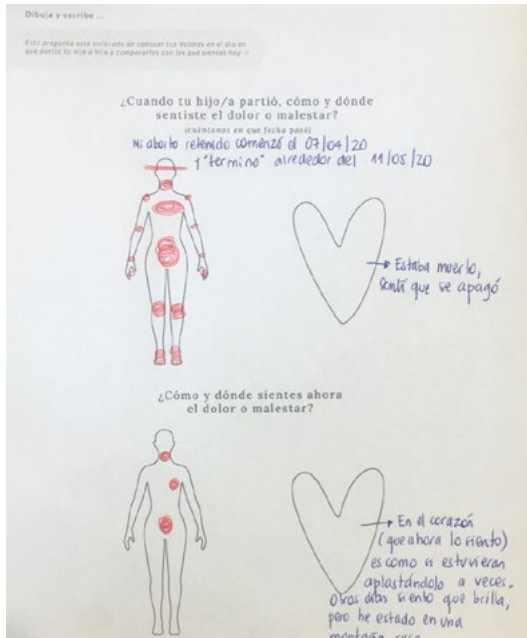 Dibuja y escribe ...
Esta pregunta está enfocada en conocer tus dolores en el día en
que partió tu hijo o hija y compararlos con los que sientes hoy
¿Cuando tu hijo/a partió, cómo y dónde
sentiste el dolor o malestar?
(cuéntanos en que fecha pasó)
Mi aborto retenido comenzó el 07/04/20
y "terminó" alrededor del 11/05/20
Estaba muerto,
sentí que se apagó
¿Cómo y dónde sientes ahora
el dolor o malestar?
En el corazón
(que ahora lo siento)
es como si estuvieran
aplastándolo a veces.
Otros días siento que brilla,
pero he estado en una
montaña rusa